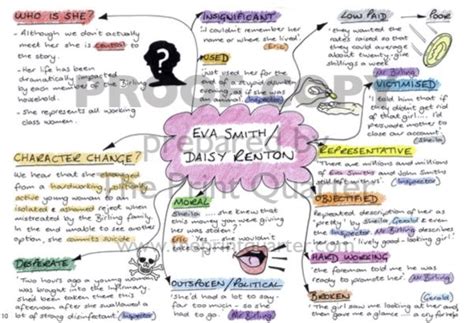 WHO IS SHE?
- Although we don't actually
meet her she is central to
the story.
- Her life has been
dramatically impacted
by each member of the Birling
household.
- she represents all working
class women.
INSIGNIFICANT
'I couldn't remember her
name or where she lived'.
(Eric)
USED
used her for the
end of a stupid drunken
evening, as if she was
an animal. (Inspector)
LOW PAID
POOR
'they wanted the
rates raised so that
they could average
about twenty-five
shillings a week'
Mr Birling
VICTIMISED
'I told him that if
they didn't get rid
of that girl.... I'd
persuade mother to
close our account'
(Sheila)
EVA SMITH/
DAISY RENTON
REPRESENTATIVE
There are millions and
millions of Eva Smiths
and John Smiths
still left with us'. (Inspector)
CHARACTER CHANGE?
We hear that she changed
from a hardworking
active young woman to an
isolated & ashamed reject when
mistreated by the Birling family.
In the end unable to see another
option, she commits suicide
MORAL
Sheila
'... she knew that
this money you were giving
her was stolen?
Eric
OBJECTIFIED
Repeated description of her as
'pretty' by Sheila, Gerald & even
the Inspector. Mr Birling describes
her as 'lively good-looking girl'.
DESPERATE
'Two hours ago a young woman
was brought into the infirmary.
She'd been taken there this
afternoon after she swallowed a
lot of strong disinfectant. Inspector
OUTSPOKEN/POLITICAL
'She'd had a lot to say -
far too much - so she
had to go. Mr Birling
HARD WORKING
'the foreman told me he
was ready to promote her'
Mr Birling
BROKEN
(Gerald)
'The girl saw me looking at her and
then gave me a glance... a cry for help'
PROOF COPY
prepared by
The Print Quarter
10